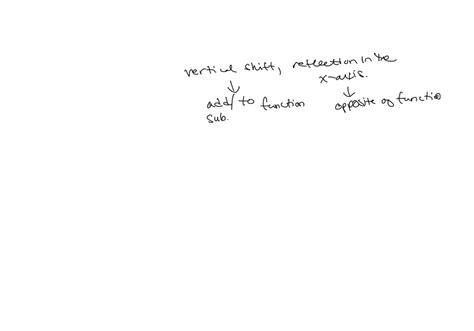 vertical shift, reflection in the
x-axis.
add/ to function
sub.
opposite of function